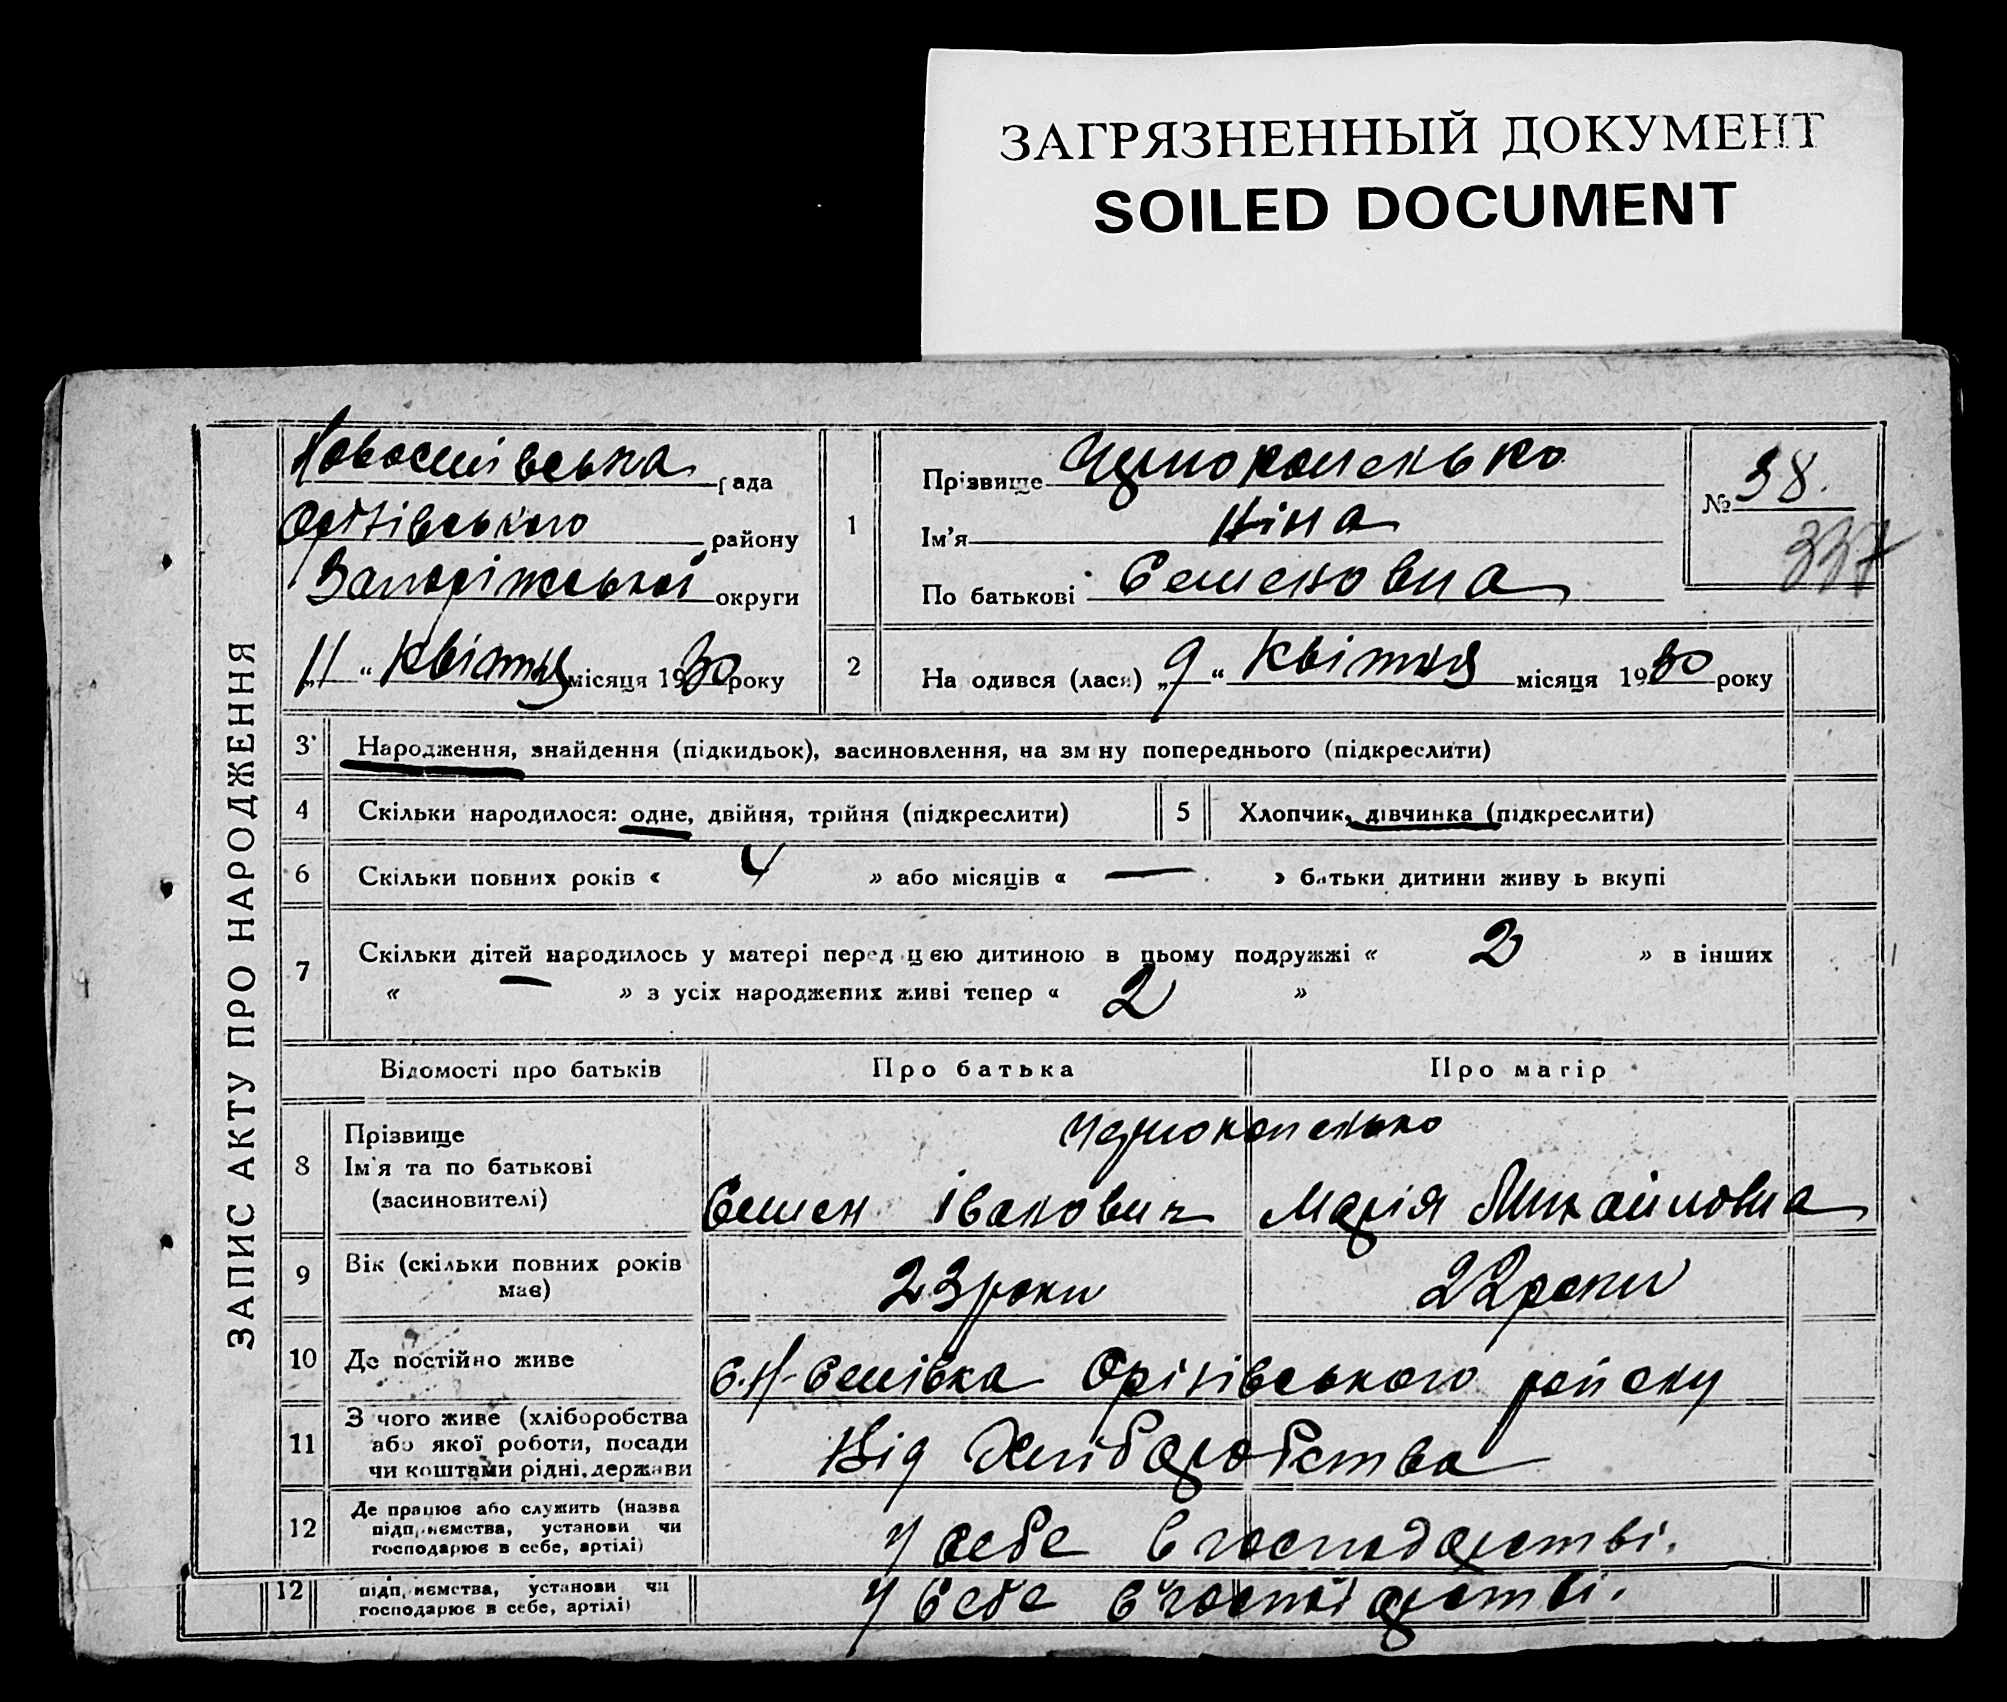 ЗАГРЯЗНЕННЫЙ ДОКУМЕНТ
SOILED DOCUMENT
ЗАПИС АКТУ ПРО НАРОДЖЕННЯ
рада
Оріхівського району
Запоріжської округи
„11“ Квітня місяця 1930 року
1
Прізвище
Ім'я Ніна
По батькові Семеновна
№ 38.
337
2
На одився (лася) „9“ Квітня місяця 1930 року
3 Народження, знайдення (підкидьок), засиновлення, на зм ну попереднього (підкреслити)
4 Скільки народилося: одне, двійня, трійня (підкреслити)
5 Хлопчик, дівчинка (підкреслити)
6 Скільки повних років « 4 » або місяців « — » батьки дитини живу ь вкупі
7 Скільки дітей народилось у матері перед цею дитиною в цьому подружжі « 2 » в інших
« — » з усіх народжених живі тепер « 2 »
Відомості про батьків Про батька Про матір
8 Прізвище
Ім'я та по батькові
(засиновителі)
Семен Іванович Марія Михайловна
9 Вік (скільки повних років
має)
23 роки 22 роки
10 Де постійно живе с. Н-Семівка Оріхівського району
11 З чого живе (хліборобства
або якої роботи, посади
чи коштами рідні, держави
Від Хліборобства
12 Де працює або служить (назва
підп иємства, установи чи
господарює в себе, артілі)
У себе в господарстві.
12 підп иємства, установи чи
господарює в себе, артілі)
У себе в господарстві.